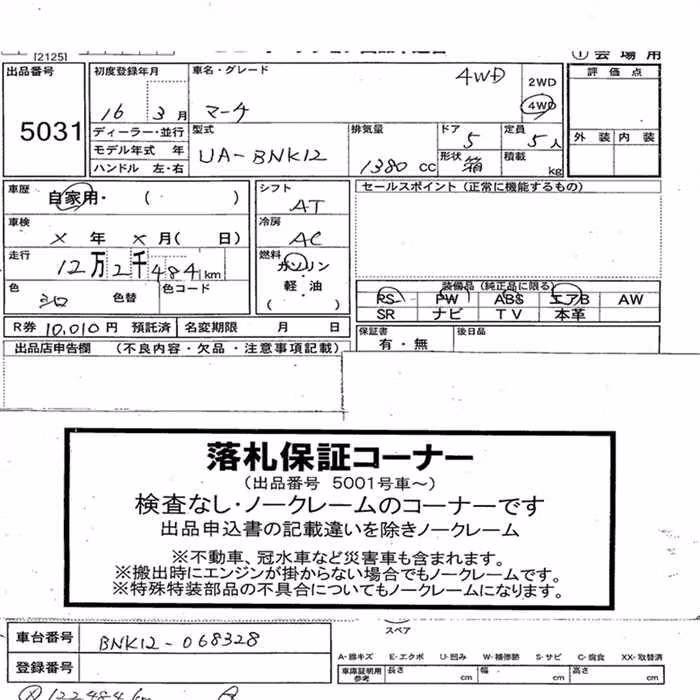 [2125]
① 会場用
出品番号 5031
初度登録年月 16 3月
車名・グレード マーチ 4WD
2WD
4WD
評価点
外装 内装
ディーラー・並行
モデル年式 年
ハンドル 左・右
型式 UA-BNK12
排気量 1380 cc
ドア 5
定員 5人
形状 箱
積載 kg
車歴 自家用・( )
車検 × 年 × 月( 日)
走行 12万2千484km
色 シロ 色替
色コード
シフト AT
冷房 AC
燃料 ガソリン
軽・油
( )
セールスポイント (正常に機能するもの)
装備品 (純正品に限る)
PS PW ABS エアB AW
SR ナビ TV 本革
R券 10,010円 預託済 名変期限 月 日
保証書 有・無
後日品
出品店申告欄 (不良内容・欠品・注意事項記載)
落札保証コーナー
(出品番号 5001号車～)
検査なし・ノークレームのコーナーです
出品申込書の記載違いを除きノークレーム
※不動車、冠水車など災害車も含まれます。
※搬出時にエンジンが掛からない場合でもノークレームです。
※特殊特装部品の不具合についてもノークレームになります。
スペア
車台番号 BNK12-068328
登録番号
A-線キズ E-エクボ U-凹み W-補修跡 S-サビ C-腐食 XX-取替済
車庫証明用参考 長さ cm 幅 cm 高さ cm
122484km